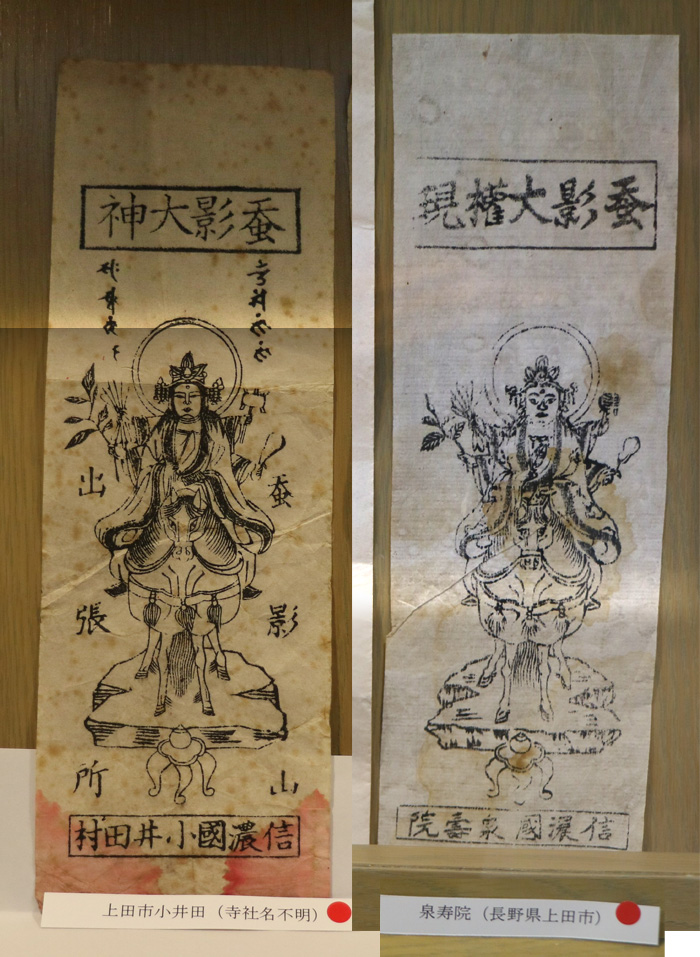 蚕影大神
蚕影山
出張所
信濃國小井田村
上田市小井田（寺社名不明）
蚕影大權現
信濃國泉壽院
泉寿院（長野県上田市）